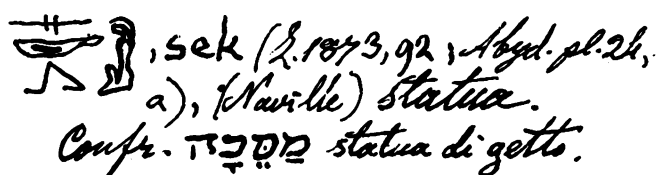 , sek (Z. 1873, 92; Abyd. pl. 24,
a), (Navilie) statua.
Confr. מַסֵּכָה statua di getto.